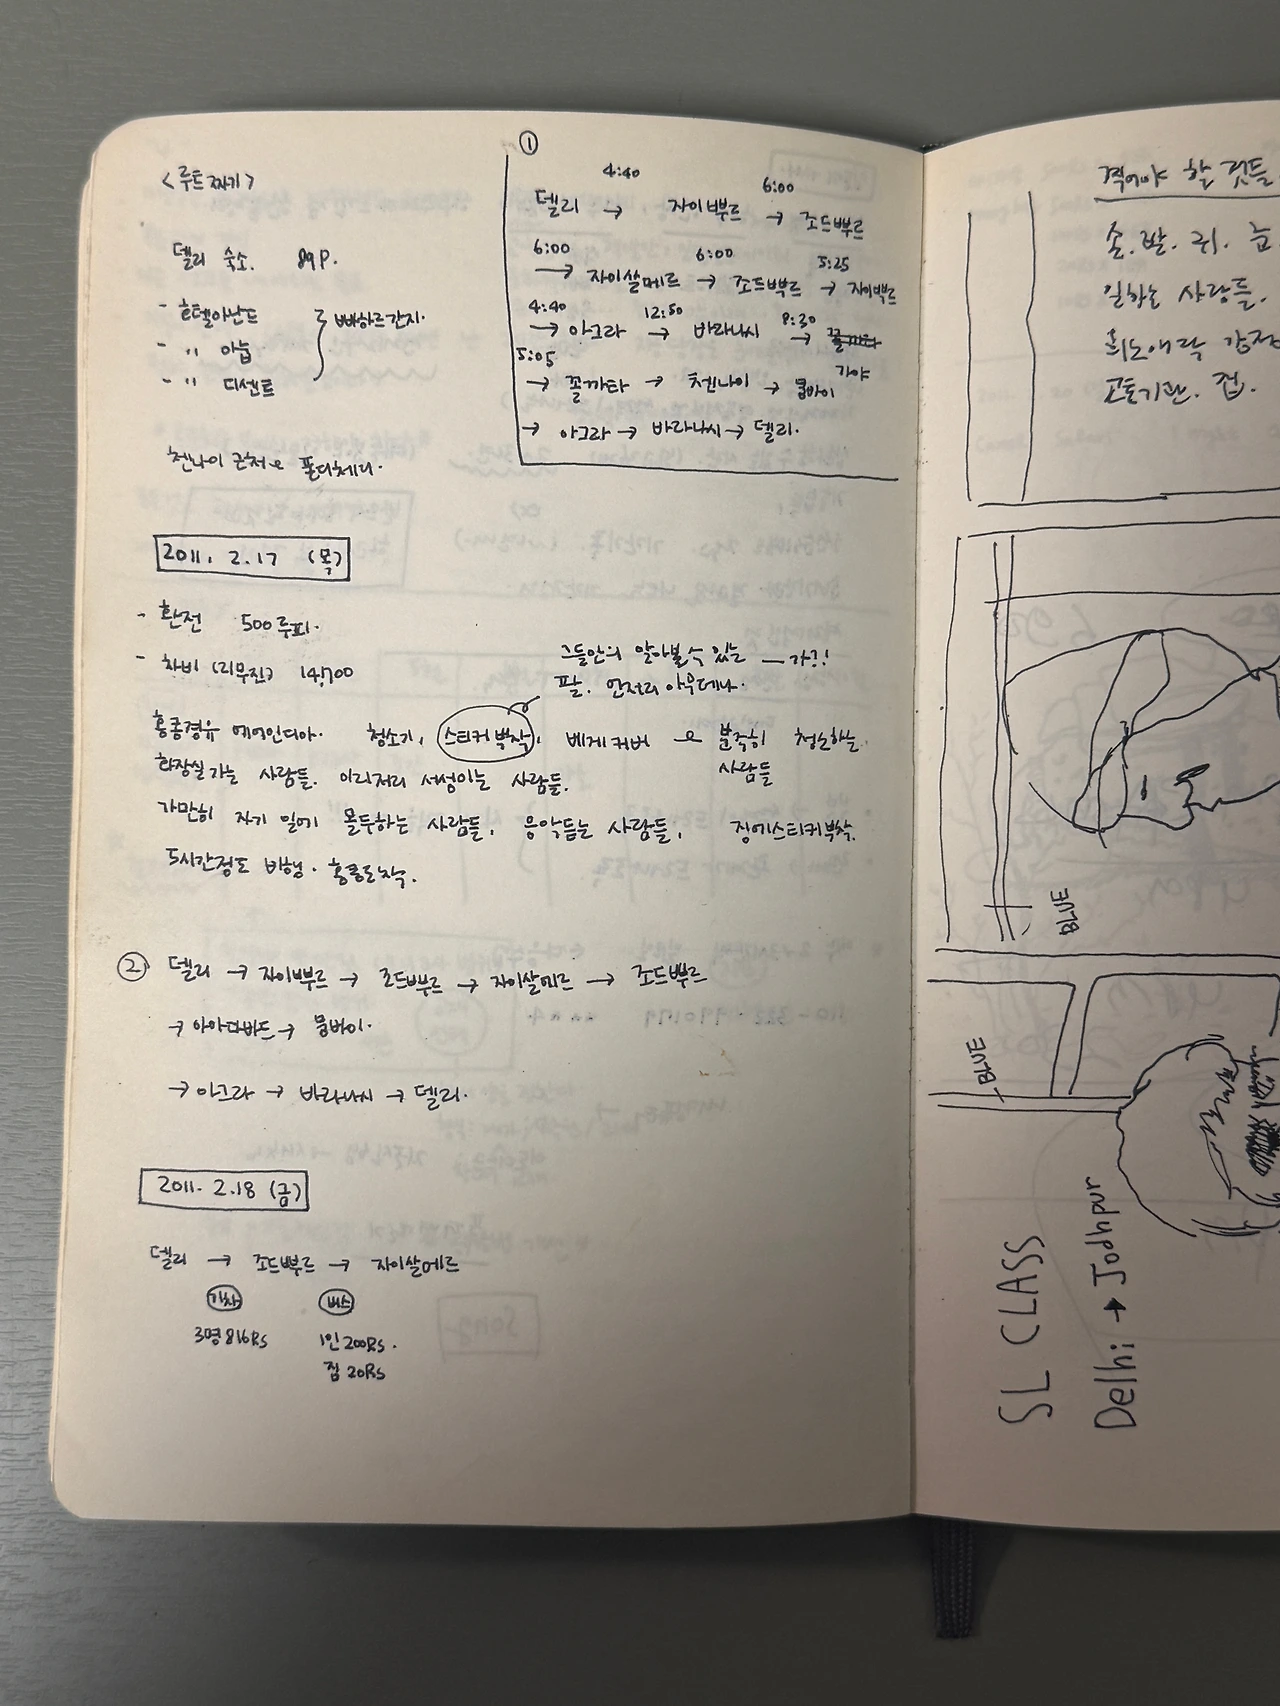 <루트짜기>
델리 숙소. 89P.
- 호텔아난드
- 〃 아눕
- 〃 디센트
빠하르간지.
첸나이 근처요 폰디체리.
①
4:40 6:00
델리 → 자이뿌르 → 조드뿌르
6:00 6:00 5:25
→ 자이쌀메르 → 조드뿌르 → 자이뿌르
4:40 12:50 8:30
→ 아그라 → 바라나시 →
가야
5:05
→ 꼴까타 → 첸나이 → 뭄바이
→ 아그라 → 바라나시 → 델리.
2011. 2.17 (목)
- 환전 500루피.
- 차비 (리무진) 14,700
그들만의 알아볼 수 있는 — 가?!
팔. 언저리 아무데나.
홍콩경유 에어인디아. 청소기, 스티커 부착, 베게커버 분주히 청소하는
사람들
화장실가는 사람들. 이리저리 서성이는 사람들.
가만히 자기 일에 몰두하는 사람들, 음악듣는 사람들, 짐에스티커부착.
5시간정도 비행. 홍콩도착.
② 델리 → 자이뿌르 → 조드뿌르 → 자이살메르 → 조드뿌르
→ 아아다바드 → 뭄바이.
→ 아그라 → 바라나시 → 델리.
2011. 2.18 (금)
델리 → 조드뿌르 → 자이살메르
기차 버스
3명 816Rs 1인 200Rs.
짐 20Rs
찍어야 할 것들
손. 발. 귀. 눈
일하는 사람들.
희노애락 감정
교통기관. 집.
BLUE
BLUE
SL CLASS
Delhi → Jodhpur